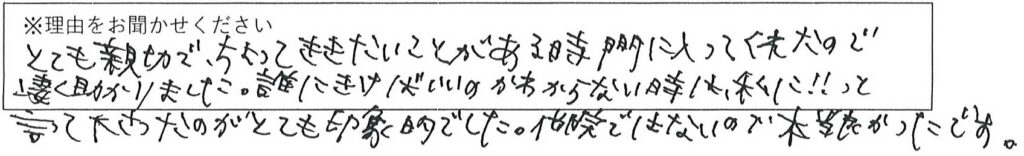 ※理由をお聞かせください
とても親切で、ちょっとききたいことがある時間に入ってくれたので
凄く助かりました。誰にきけばいいのかわからない時は、私に!!っと
言って下さったのがとても印象的でした。他院ではないので本当良かったです。